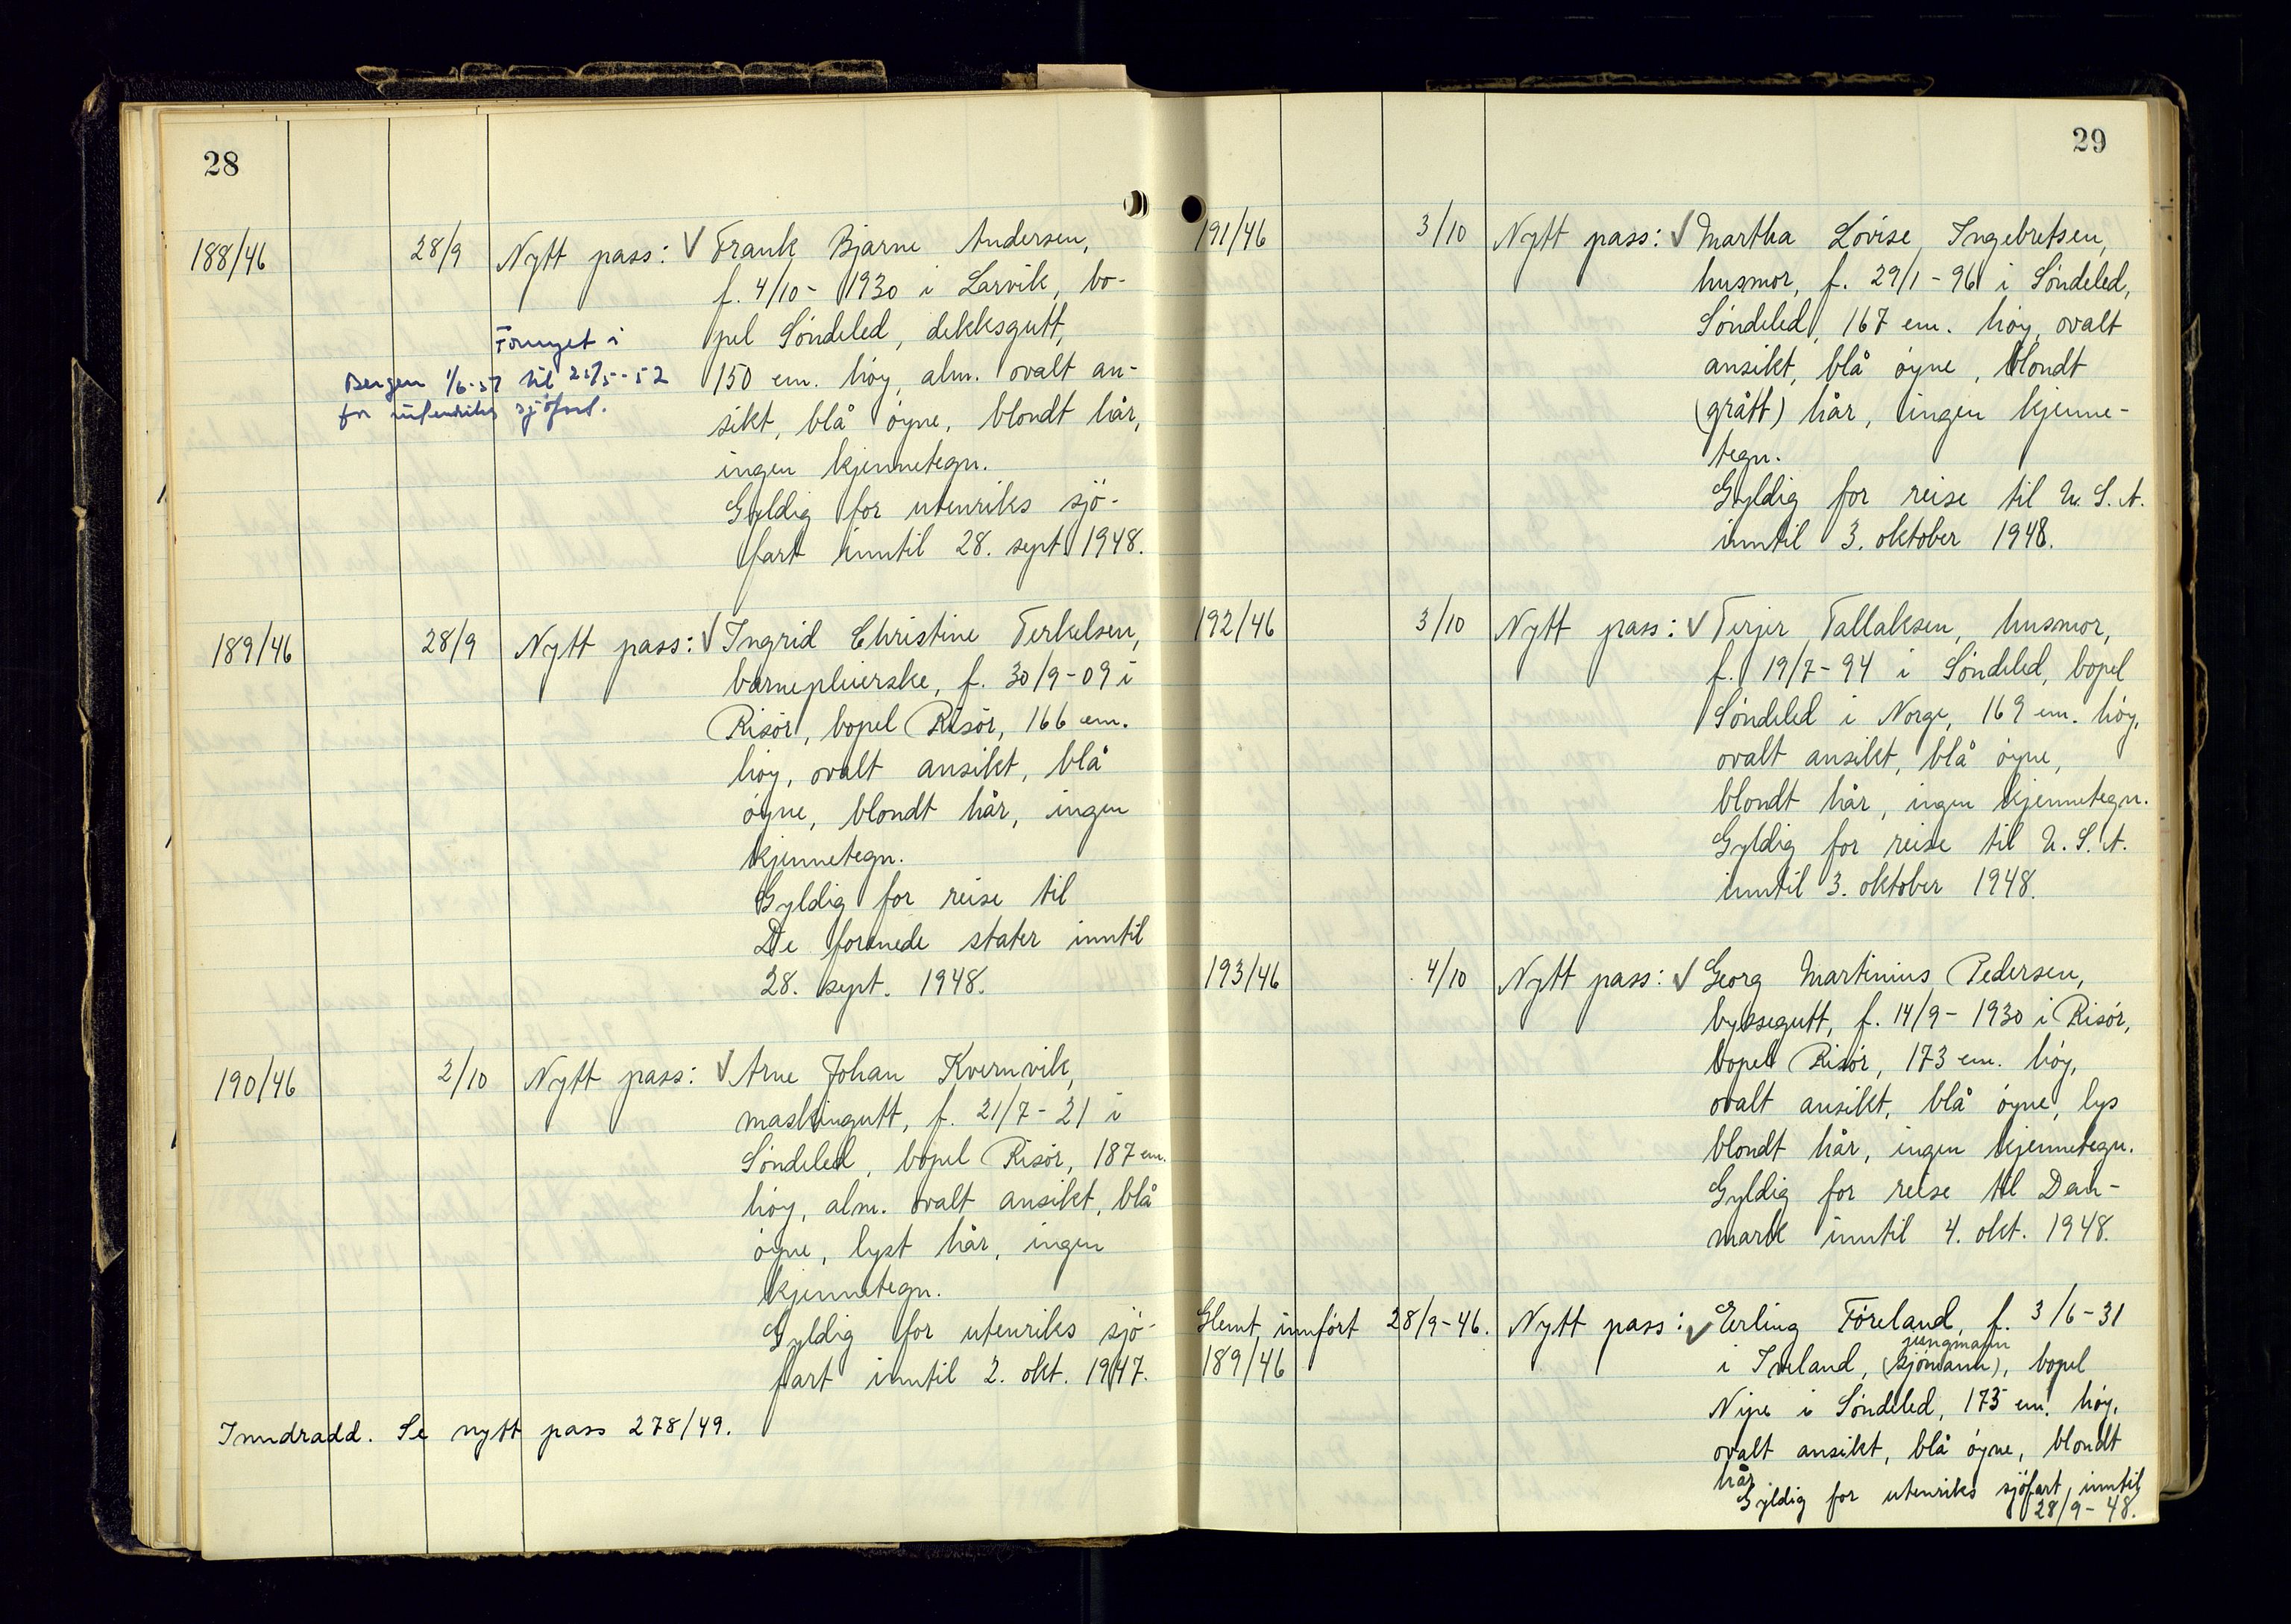 28
188/46 28/9 Nytt pass: √ Frank Bjarne Andersen,
f. 4/10 - 1930 i Larvik, bo-
pel Söndeled, dekksgutt,
150 cm. höy, alm. ovalt an-
sikt, blå öyne, blondt hår,
ingen kjennetegn.
Gyldig for utenriks sjö-
fart inntil 28. sept. 1948.
Fornyet i
Bergen 1/6-51 til 25/5-52
for utenriks sjöfart.
189/46 28/9 Nytt pass: √ Ingrid Christine Terkelsen,
barnepleierske, f. 30/9-09 i
Risör, bopel Risör, 166 cm.
höy, ovalt ansikt, blå
öyne, blondt hår, ingen
kjennetegn.
Gyldig for reise til
De forenede stater inntil
28. sept. 1948.
190/46 2/10 Nytt pass: √ Arne Johan Kvernvik,
maskingutt, f. 21/7-21 i
Söndeled, bopel Risör, 187 cm.
höy, alm. ovalt ansikt, blå
öyne, lyst hår, ingen
kjennetegn.
Gyldig for utenriks sjö-
fart inntil 2. okt. 1947.
Inndradd. Se nytt pass 278/49.
29
191/46 3/10 Nytt pass: √ Martha Lovise Ingebretsen,
husmor, f. 29/1-96 i Söndeled,
Söndeled, 167 cm. höy, ovalt
ansikt, blå öyne, blondt
(grått) hår, ingen kjenne-
tegn.
Gyldig for reise til U.S.A.
inntil 3. oktober 1948.
192/46 3/10 Nytt pass: √ Terjer Tallaksen, husmor,
f. 19/7-94 i Söndeled, bopel
Söndeled i Norge, 169 cm. höy,
ovalt ansikt, blå öyne,
blondt hår, ingen kjennetegn.
Gyldig for reise til U.S.A.
inntil 3. oktober 1948.
193/46 4/10 Nytt pass: √ Georg Martinius Pedersen,
byssegutt, f. 14/9-1930 i Risör,
bopel Risör, 173 cm. höy,
ovalt ansikt, blå öyne, lys
blondt hår, ingen kjennetegn.
Gyldig for reise til Dan-
mark inntil 4. okt. 1948.
Glemt innfört 28/9-46. Nytt pass: √ Erling Föreland, f. 3/6-31
189/46
jungmann
i Iveland, (sjömann), bopel
Nipe i Söndeled, 175 cm. höy,
ovalt ansikt, blå öyne, blondt
hår
Gyldig for utenriks sjöfart inntil
28/9-48.